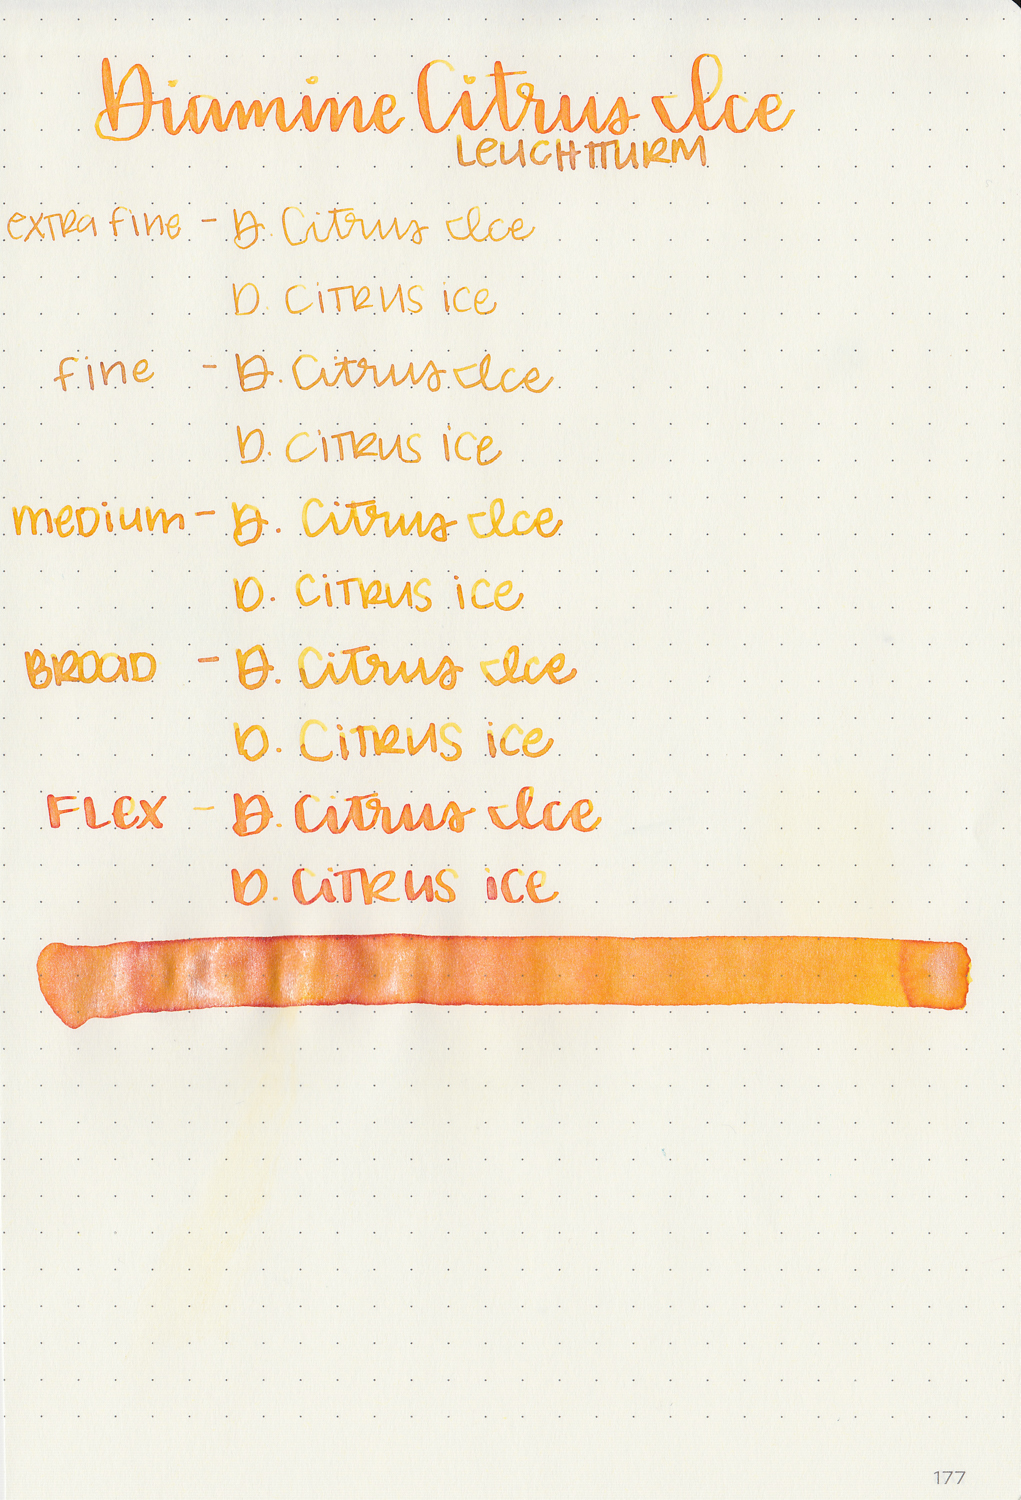 Diamine Citrus Ice
LEUCHTTURM
extra fine - D. Citrus Ice
D. CiTRUS ice
fine - D. Citrus Ice
D. CiTRUS ice
meDium - D. Citrus Ice
D. CiTRUS ice
BROaD - D. Citrus Ice
D. CiTRUS ice
FLex - D. Citrus Ice
D. CiTRUS iCe
177